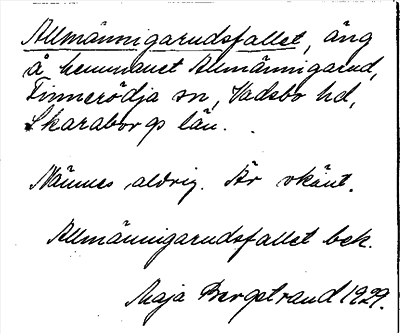 Allmännigarudsfallet, äng
å hemmanet Allmännigarud,
Finnerödja sn, Vadsbo hd,
Skaraborgs län.
Nämnes aldrig. Är okänt.
Allmännigarudsfallet bek.
Maja Bergstrand 1929.